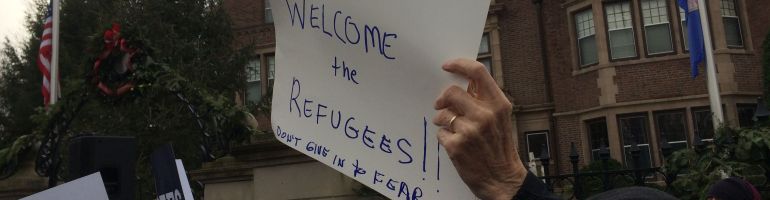 WELCOME
the
REFUGEES!!
DON'T GIVE IN to FEAR